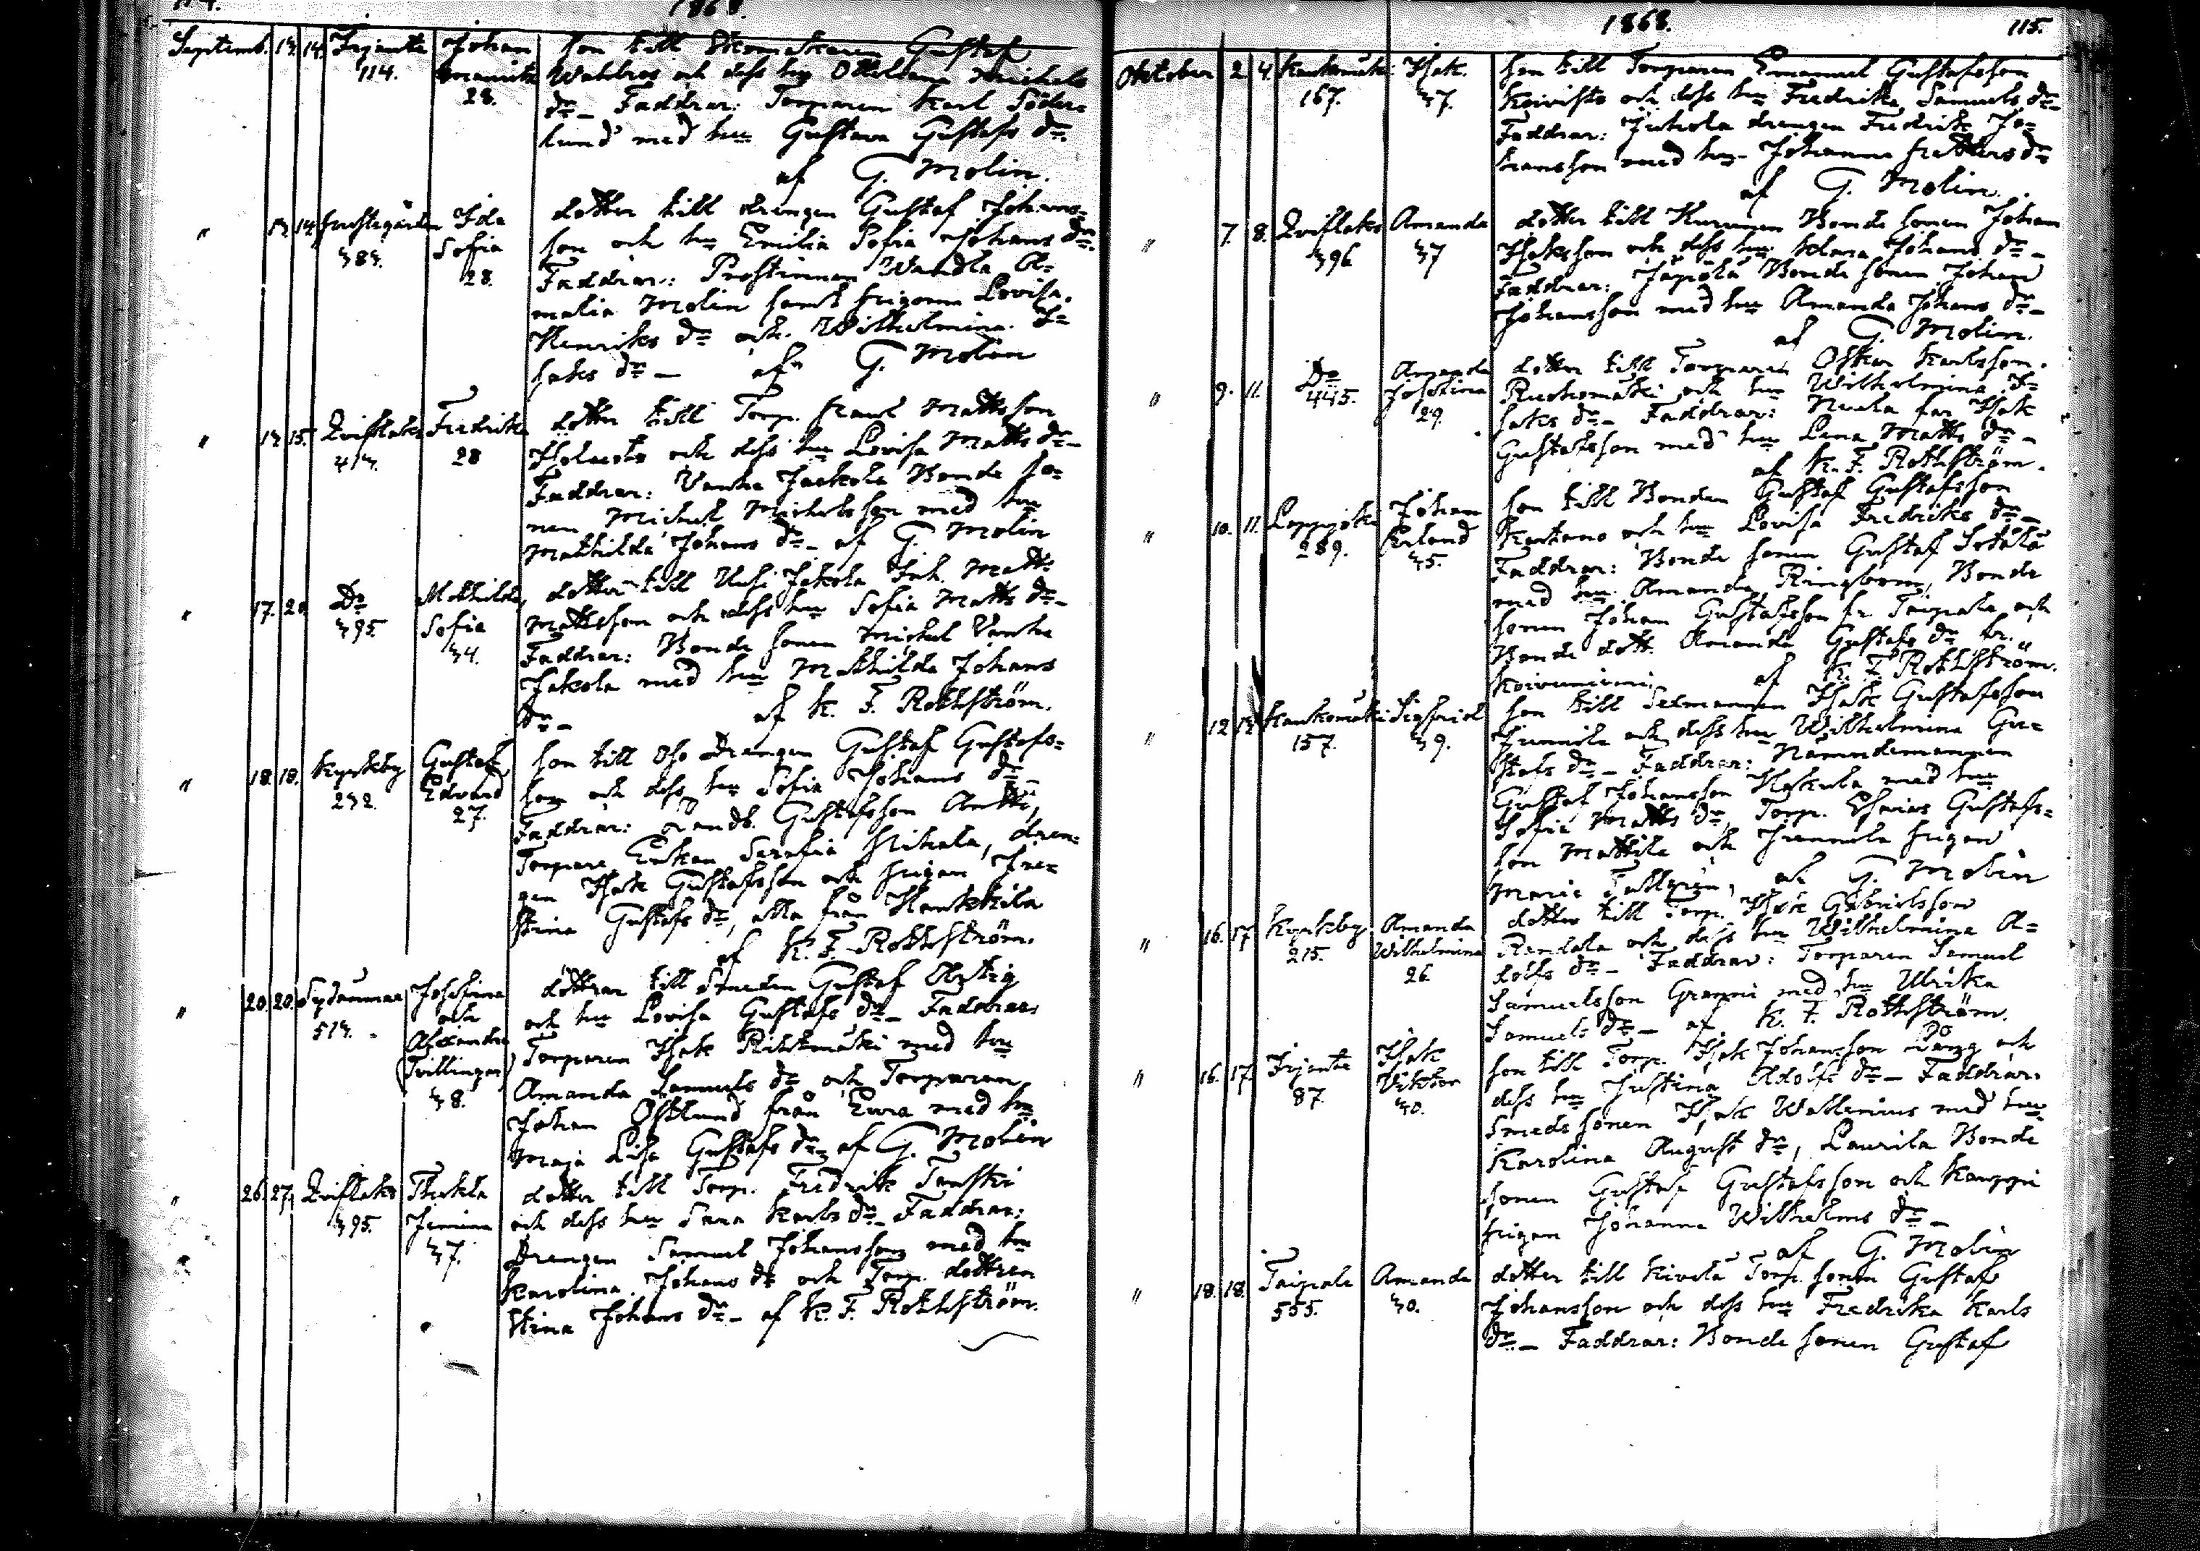 114.
1868.
Septemb. 13. 14. Irjante Johan son till Skomakaren Gustaf
114. Mauritz Wahlros och dess hu Ottiliana Michels
28. dr_ Faddrar: Torparen Karl Söder-
lund med hu Gustava Gustafs dr.
af G. Molin.
" 13. 14. Prestegården Ida dotter till drengen Gustaf Johans-
Sofia son och hu Emilia Sofia Johans dr.
28. Faddrar: Prostinnan Wandla A-
malia Molin samt pigorna Lovisa
Henriks dr och Wilhelmina I-
saks dr_ af G. Molin
" 15. Qviflaks Fredrika dotter till Torp. Karl Mattsson
28 och dess hu Lovisa Matts dr_
Faddrar: Vanha Jaakola Bonde so-
nen Michel Michelsson med hu
Mathilda Johans dr_ af G. Molin
" 17. 20. Do Mathilda dotter till Uusi Jakola Inh. Matts
395. Sofia Mattsson och dess hu Sofia Matts dr_
34. Faddrar: Bonde sonen Michel Vanha
Jakola med hu Mathilda Johans
dr_ af K. F. Rothström.
" 18. 18. Kyrkby Gustaf son till Drengen Gustaf Gustafs-
232. Edvard son och dess hu Sofia Johans dr_
27. Faddrar: Gustafsson Antti,
Torpare Enkan Serafia Mikola, dren-
gen Isak Gustafsson och pigan Jus-
tina Gustafs dr, alla från Hankkila
af K. F. Rothström.
" 20. 20. Sydänmaa Josefina döttrar till Smeden Gustaf
513. och och hu Lovisa Gustafs dr_ Faddrar
Alexandra Torparen Isak Riihimäki med hu
(Tvillingar) Amanda Samuels dr och Torparen
38. Johan Östlund från Eura med hu
Maja Lisa Gustafs dr_ af G. Molin
" 26. 27. Qviflaks Thekla dotter till Torp. Fredrik Tanski
395. Jemina och dess hu Karls dr_ Faddrar:
37. Drengen Samuel Johansson med hu
Karolina Johans dr och Torp. dottren
Stina Johans dr_ af K. F. Rothström.
1868. 115.
Oktober 2 4. Kaukomäki Isak. son till Torparen Emanuel Gustafsson
167. 37. Koivisto och dess hu Fredrika Samuels dr_
Faddrar: Juhola drengen Fredrik Jo-
hansson med hu Johanna dr_
af G. Molin.
" 7. 8. Qviflaks Amanda dotter till Bonde sonen Johan
396 37 Isaksson och dess hu Klara Johans dr_
Faddrar: Bonde sonen Johan
Johansson med hu Amanda Johans dr_
af G. Molin.
" 9. 11. Do Amanda dotter till Torparen Oskar Karlsson
445. Josefina Ruohomäki och hu Wilhelmina I-
29. saks dr_ Faddrar: Isak
Gustafsson med hu Lena Matts dr_
af K. F. Rothström.
" 10. 11. Lappijoki Johan son till Bonden Gustaf Gustafsson
289. Erland och hu Lovisa Fredriks dr_
35. Faddrar: Bonde sonen Gustaf Sotala
med hu Amanda Ringbom, Bonde
sonen Johan Gustafsson fr. Taipale och
Bonde dott. Amanda Gustafs dr fr.
Koivuniemi af K. F. Rothström.
" 12 13. Kaukomäki Sigfrid son till Isak Gustafsson
157. 39. Junnila och dess hu Wilhelmina Gu-
stafs dr_ Faddrar: Nämndemannen
Gustaf Johansson Heskula med hu
Sofia Matts dr, Torp. Esaias Gustafs-
son Mattila och Junnila pigan
Maria af G. Molin
" 16. 17. Kyrkby Amanda dotter till Torp. Isak Gabrielsson
215. Wilhelmina Rendala och dess hu Wilhelmina A-
26 dolfs dr_ Faddrar: Torparen Samuel
Samuelsson Granni med hu Ulrika
Samuels dr_ af K. F. Rothström.
" 16. 17. Irjante Isak son till Torp. Isak Johansson Lång och
87. Viktor dess hu Justina Adolfs dr_ Faddrar:
30. Smeds sonen Isak Wallenius med hu
Karolina August dr, Laurila Bonde
sonen Gustaf Gustafsson och Kauppi
pigan Johanna Wilhelms dr_
af G. Molin
" 18. 18. Taipale Amanda dotter till Kivelä Torp. sonen Gustaf
555. 30. Johansson och dess hu Fredrika Karls
dr_ Faddrar: Bonde sonen Gustaf